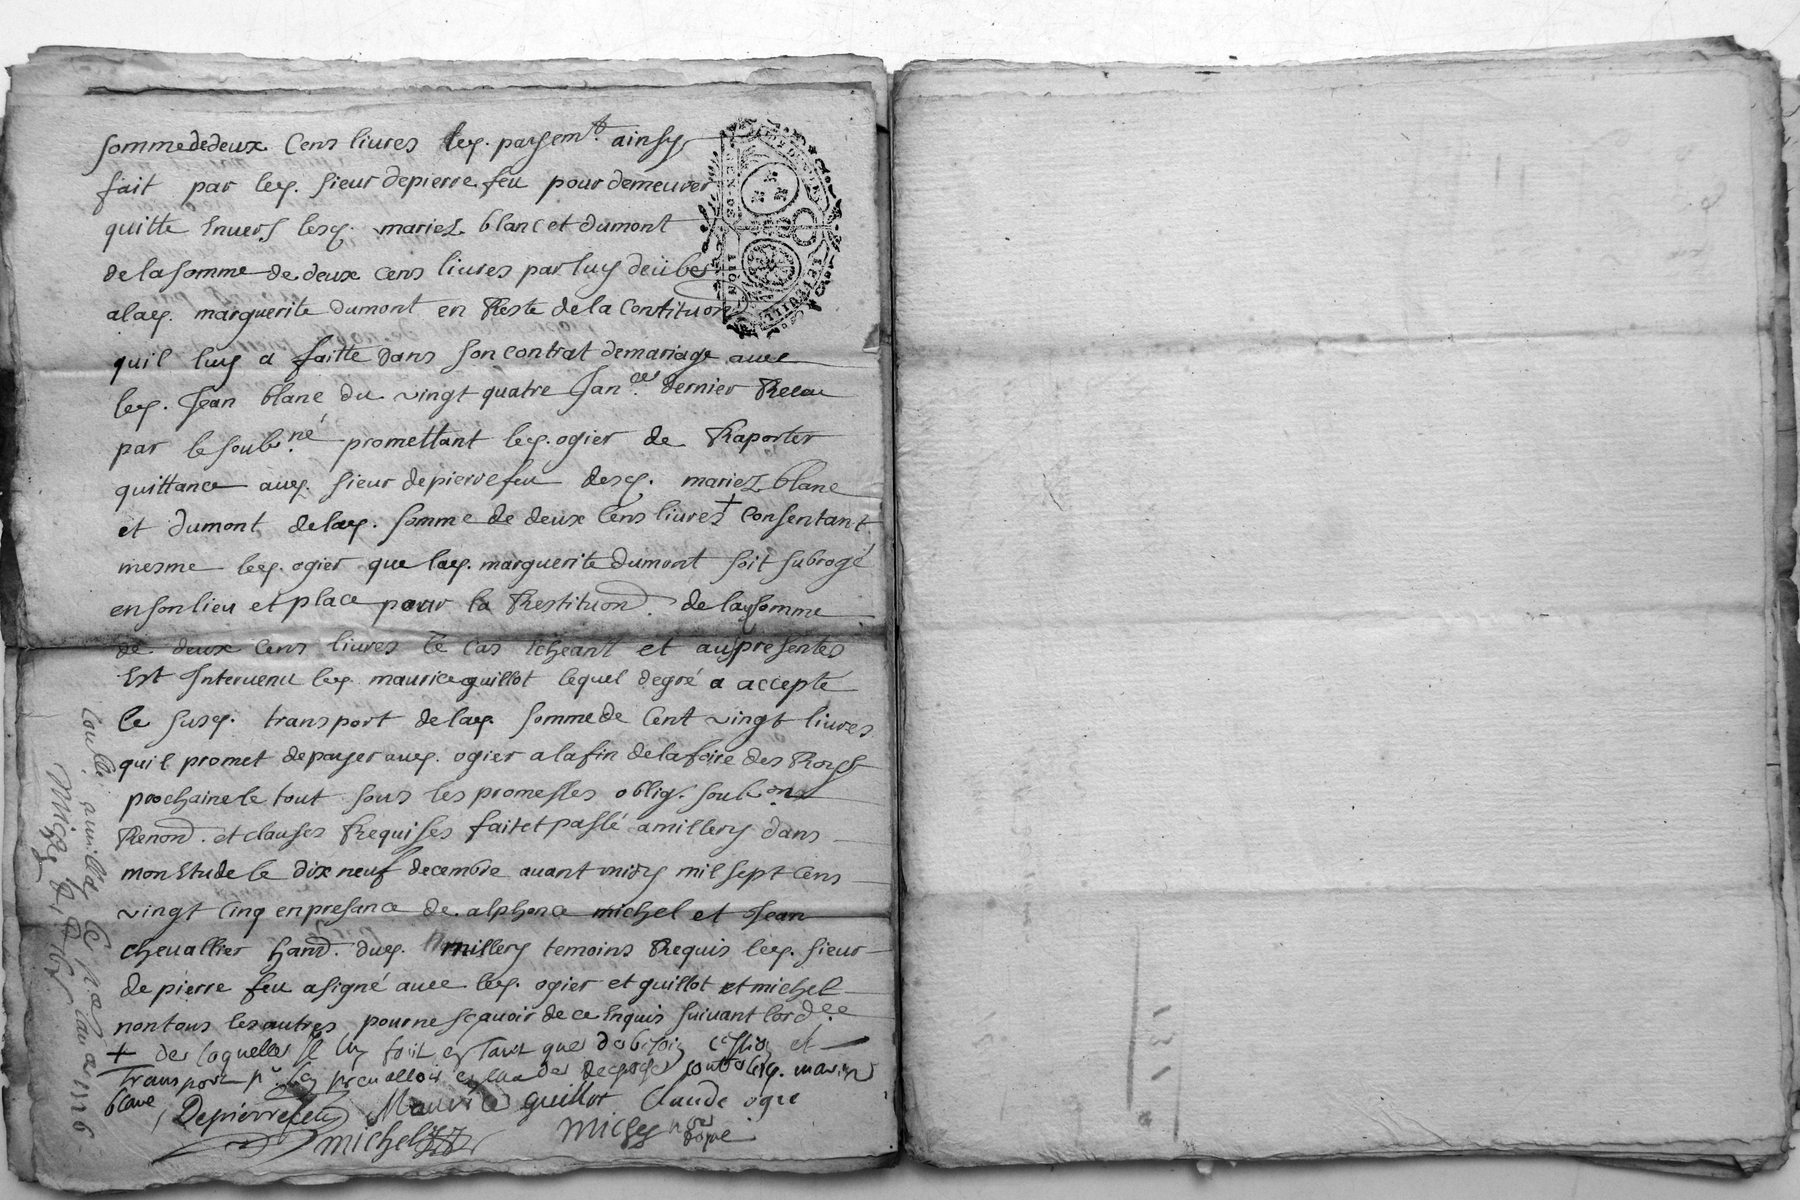 sommededeux Cens livres ley. payem.t ainsy
fait par ley. sieur depierre feu pour demeurer
quitte Envers lesy. mariez blanc et dumont
delasomme de deux cens livres par luy deübes
alay. marguerite dumont en Reste dela Contituon
quil luy a faitte dans son contrat demariage avec
ley. Jean blanc du vingt quatre Jan.er dernier Receu
par le soub.né promettant ley. ogier de Raporter
quittance auy. sieur depierrefeu desy. mariez blanc
et dumont delay. somme de deux Cens livres + Consentant
mesme ley. ogier que lay. marguerite dumont soit subrogé
ensonlieu et place pour la Restituon. de laysomme
de deux Cens livres le cas Echeant et auspresentes
Est Intervenu ley. mauriceguillot lequel degré a accepté
le susy. transport delay. sommede Cent vingt livres
quil promet depayer auy. ogier alafin delafoire des Roys
prochainele tout sous les promesses oblig. soub.ons
Renond. et clauses Requises fait et passé amillery dans
mon Etude le dix neuf decembre avant midy mil sept Cens
vingt Cinq enpresance de alphonce michel et Jean
chevallier hand. duy. millery temoins Requis ley. sieur
de pierre feu asigné avec ley. ogier et guillot et michel
nontous lesautres pourne sçavoir de ce Enquis suivant lord.ce
+ de laquelle il luy fait en tant que de besoin cession et
transport p.r sen prevalloir contre ley. mariez
blanc
Depierrefeu Maurice guillot Claude ogie
michel